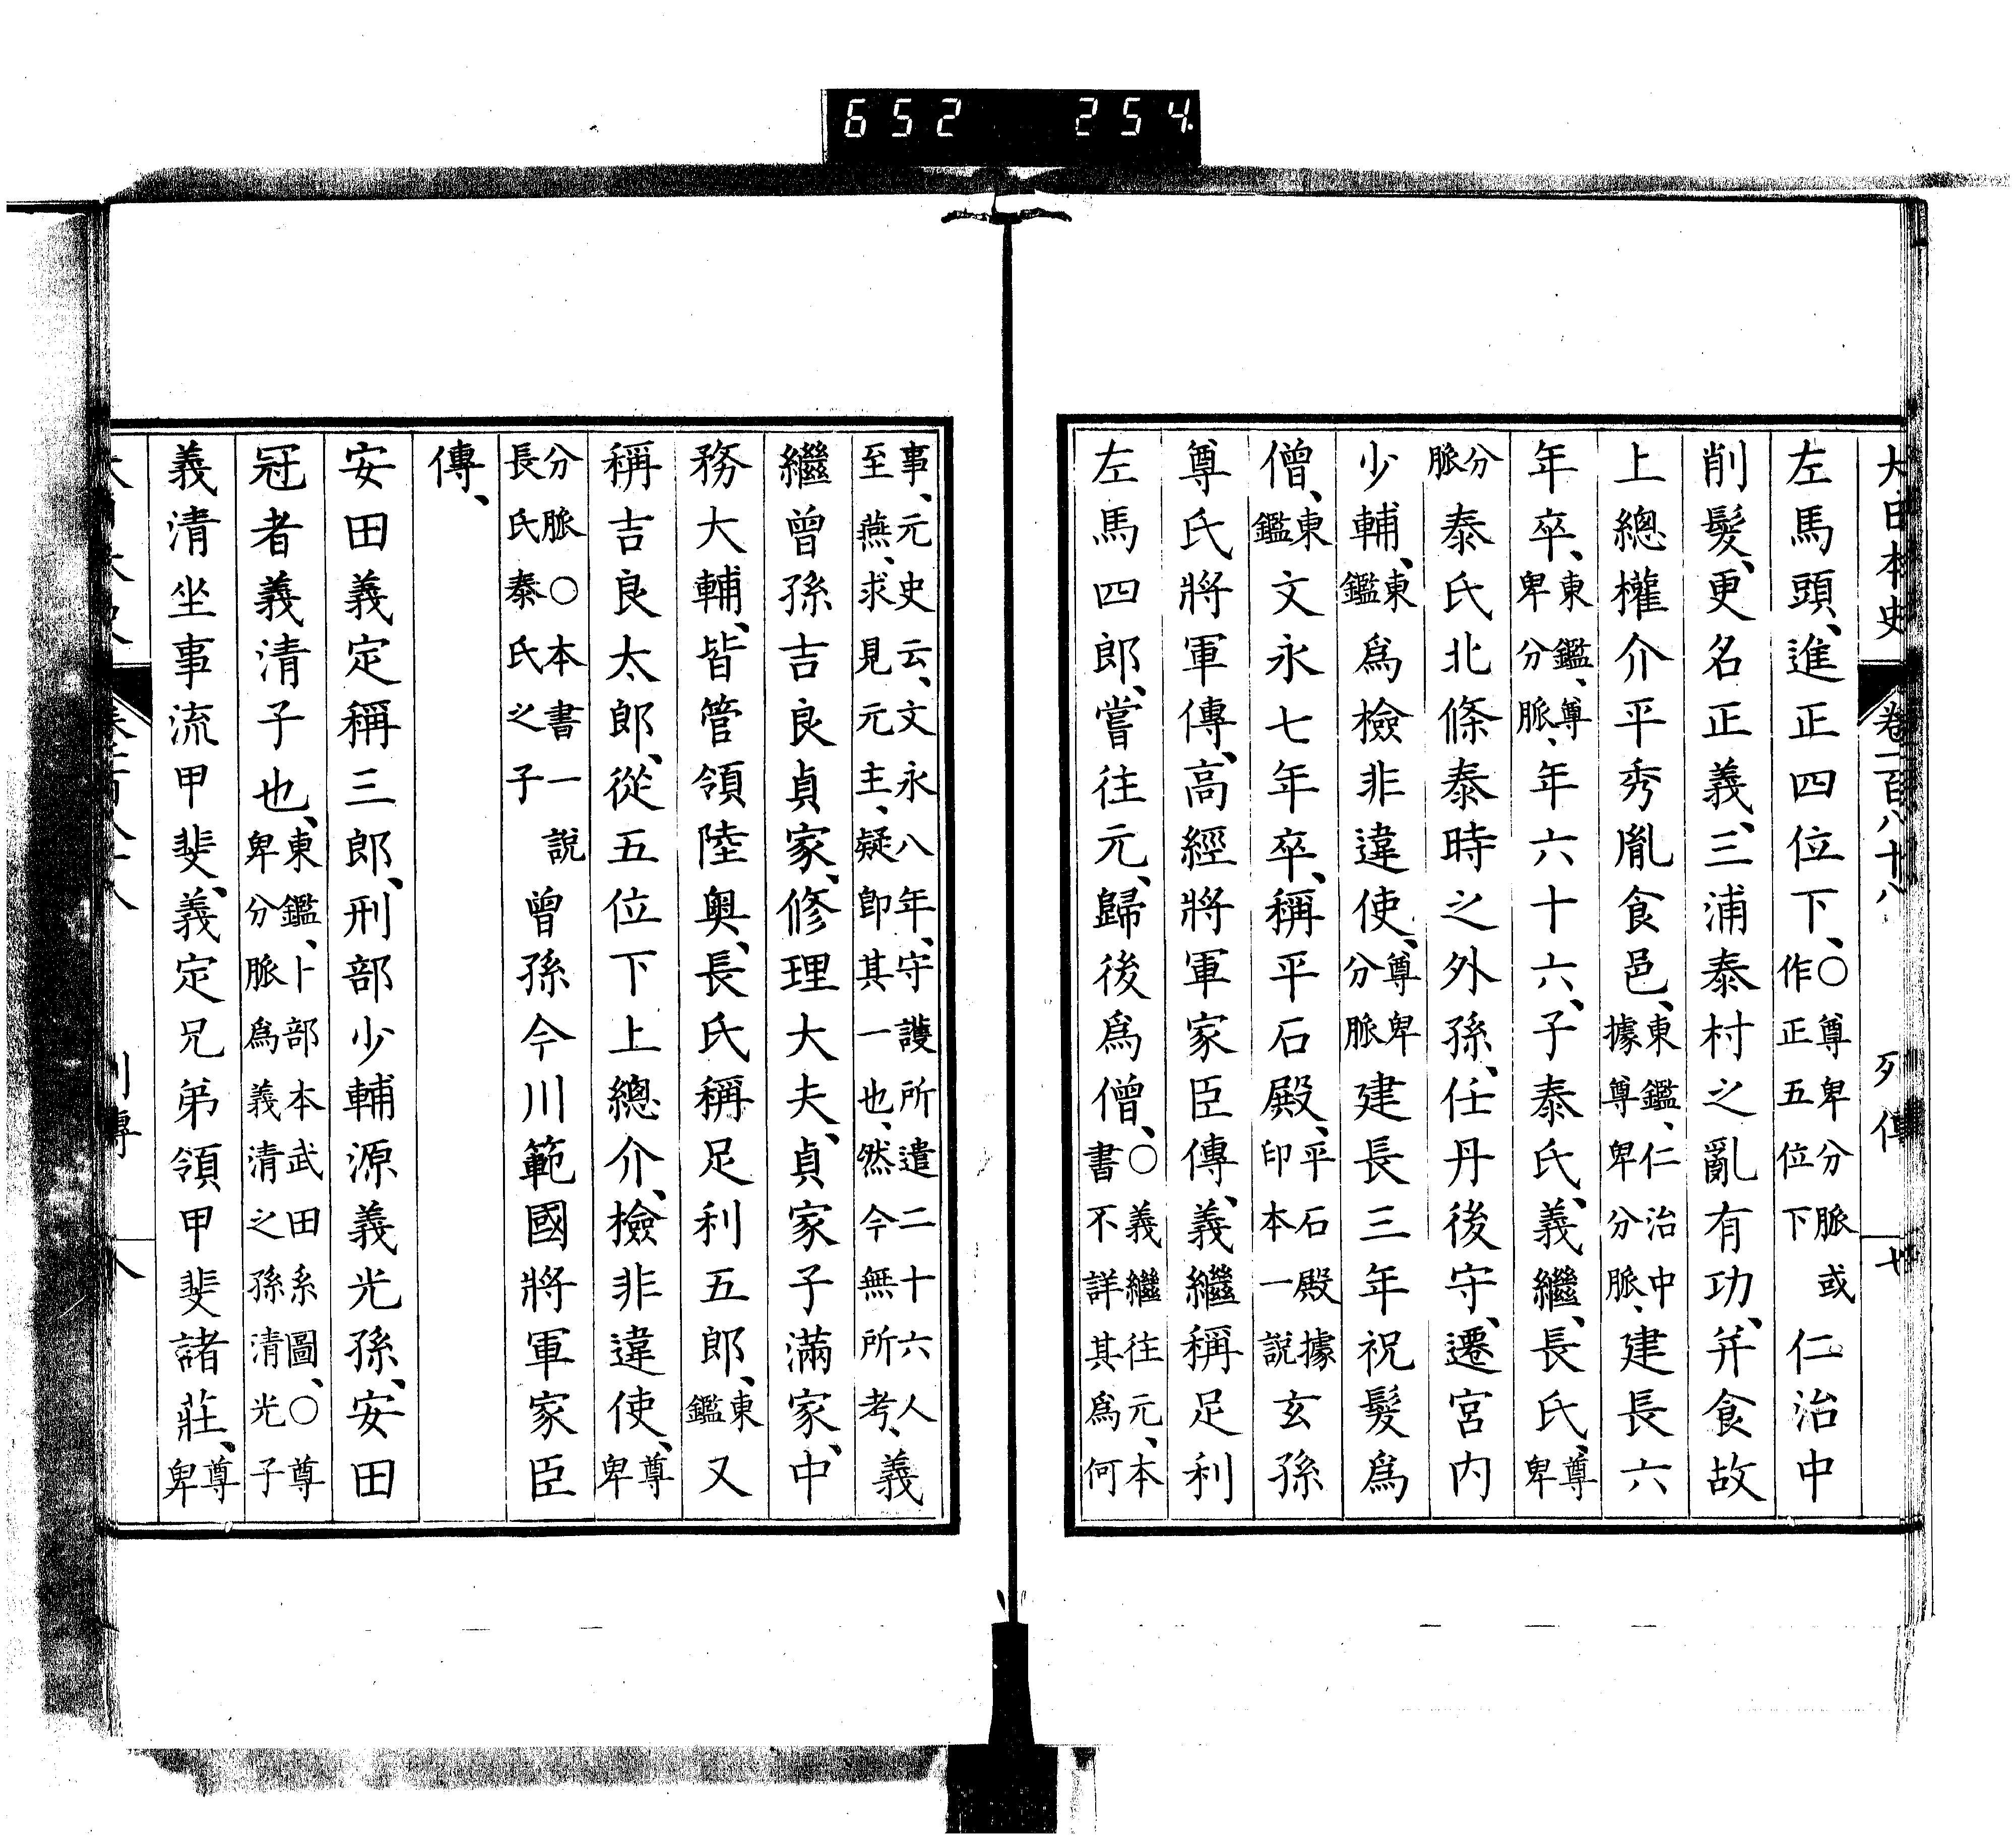 652 254
大日本史 卷一百八十八 列傳 十七
左馬頭、進正四位下、○尊卑分脈或作正五位下 仁治中
削髮、更名正義、三浦泰村之亂有功、并食故
上總權介平秀胤食邑、東鑑、仁治中據尊卑分脈、建長六
年卒、東鑑、尊卑分脈、年六十六、子泰氏、義繼、長氏、尊卑
分脈泰氏北條泰時之外孫、任丹後守、遷宮內
少輔、東鑑爲檢非違使、尊卑分脈建長三年祝髮爲
僧、東鑑文永七年卒、稱平石殿、平石殿據印本一說玄孫
尊氏將軍傳、高經將軍家臣傳、義繼稱足利
左馬四郎、嘗往元、歸後爲僧、○義繼往元、本書不詳其爲何
事、元史云、文永八年、守護所遣二十六人至燕、求見元主、疑卽其一也、然今無所考、義
繼曾孫吉良貞家、修理大夫、貞家子滿家、中
務大輔、皆管領陸奧、長氏稱足利五郎、東鑑又
稱吉良太郎、從五位下上總介、檢非違使、尊卑
分脈○本書一說長氏泰氏之子曾孫今川範國將軍家臣
傳、
安田義定稱三郎、刑部少輔源義光孫、安田
冠者義清子也、東鑑、卜部本武田系圖、○尊卑分脈爲義清之孫清光子
義清坐事流甲斐、義定兄弟領甲斐諸莊、尊卑